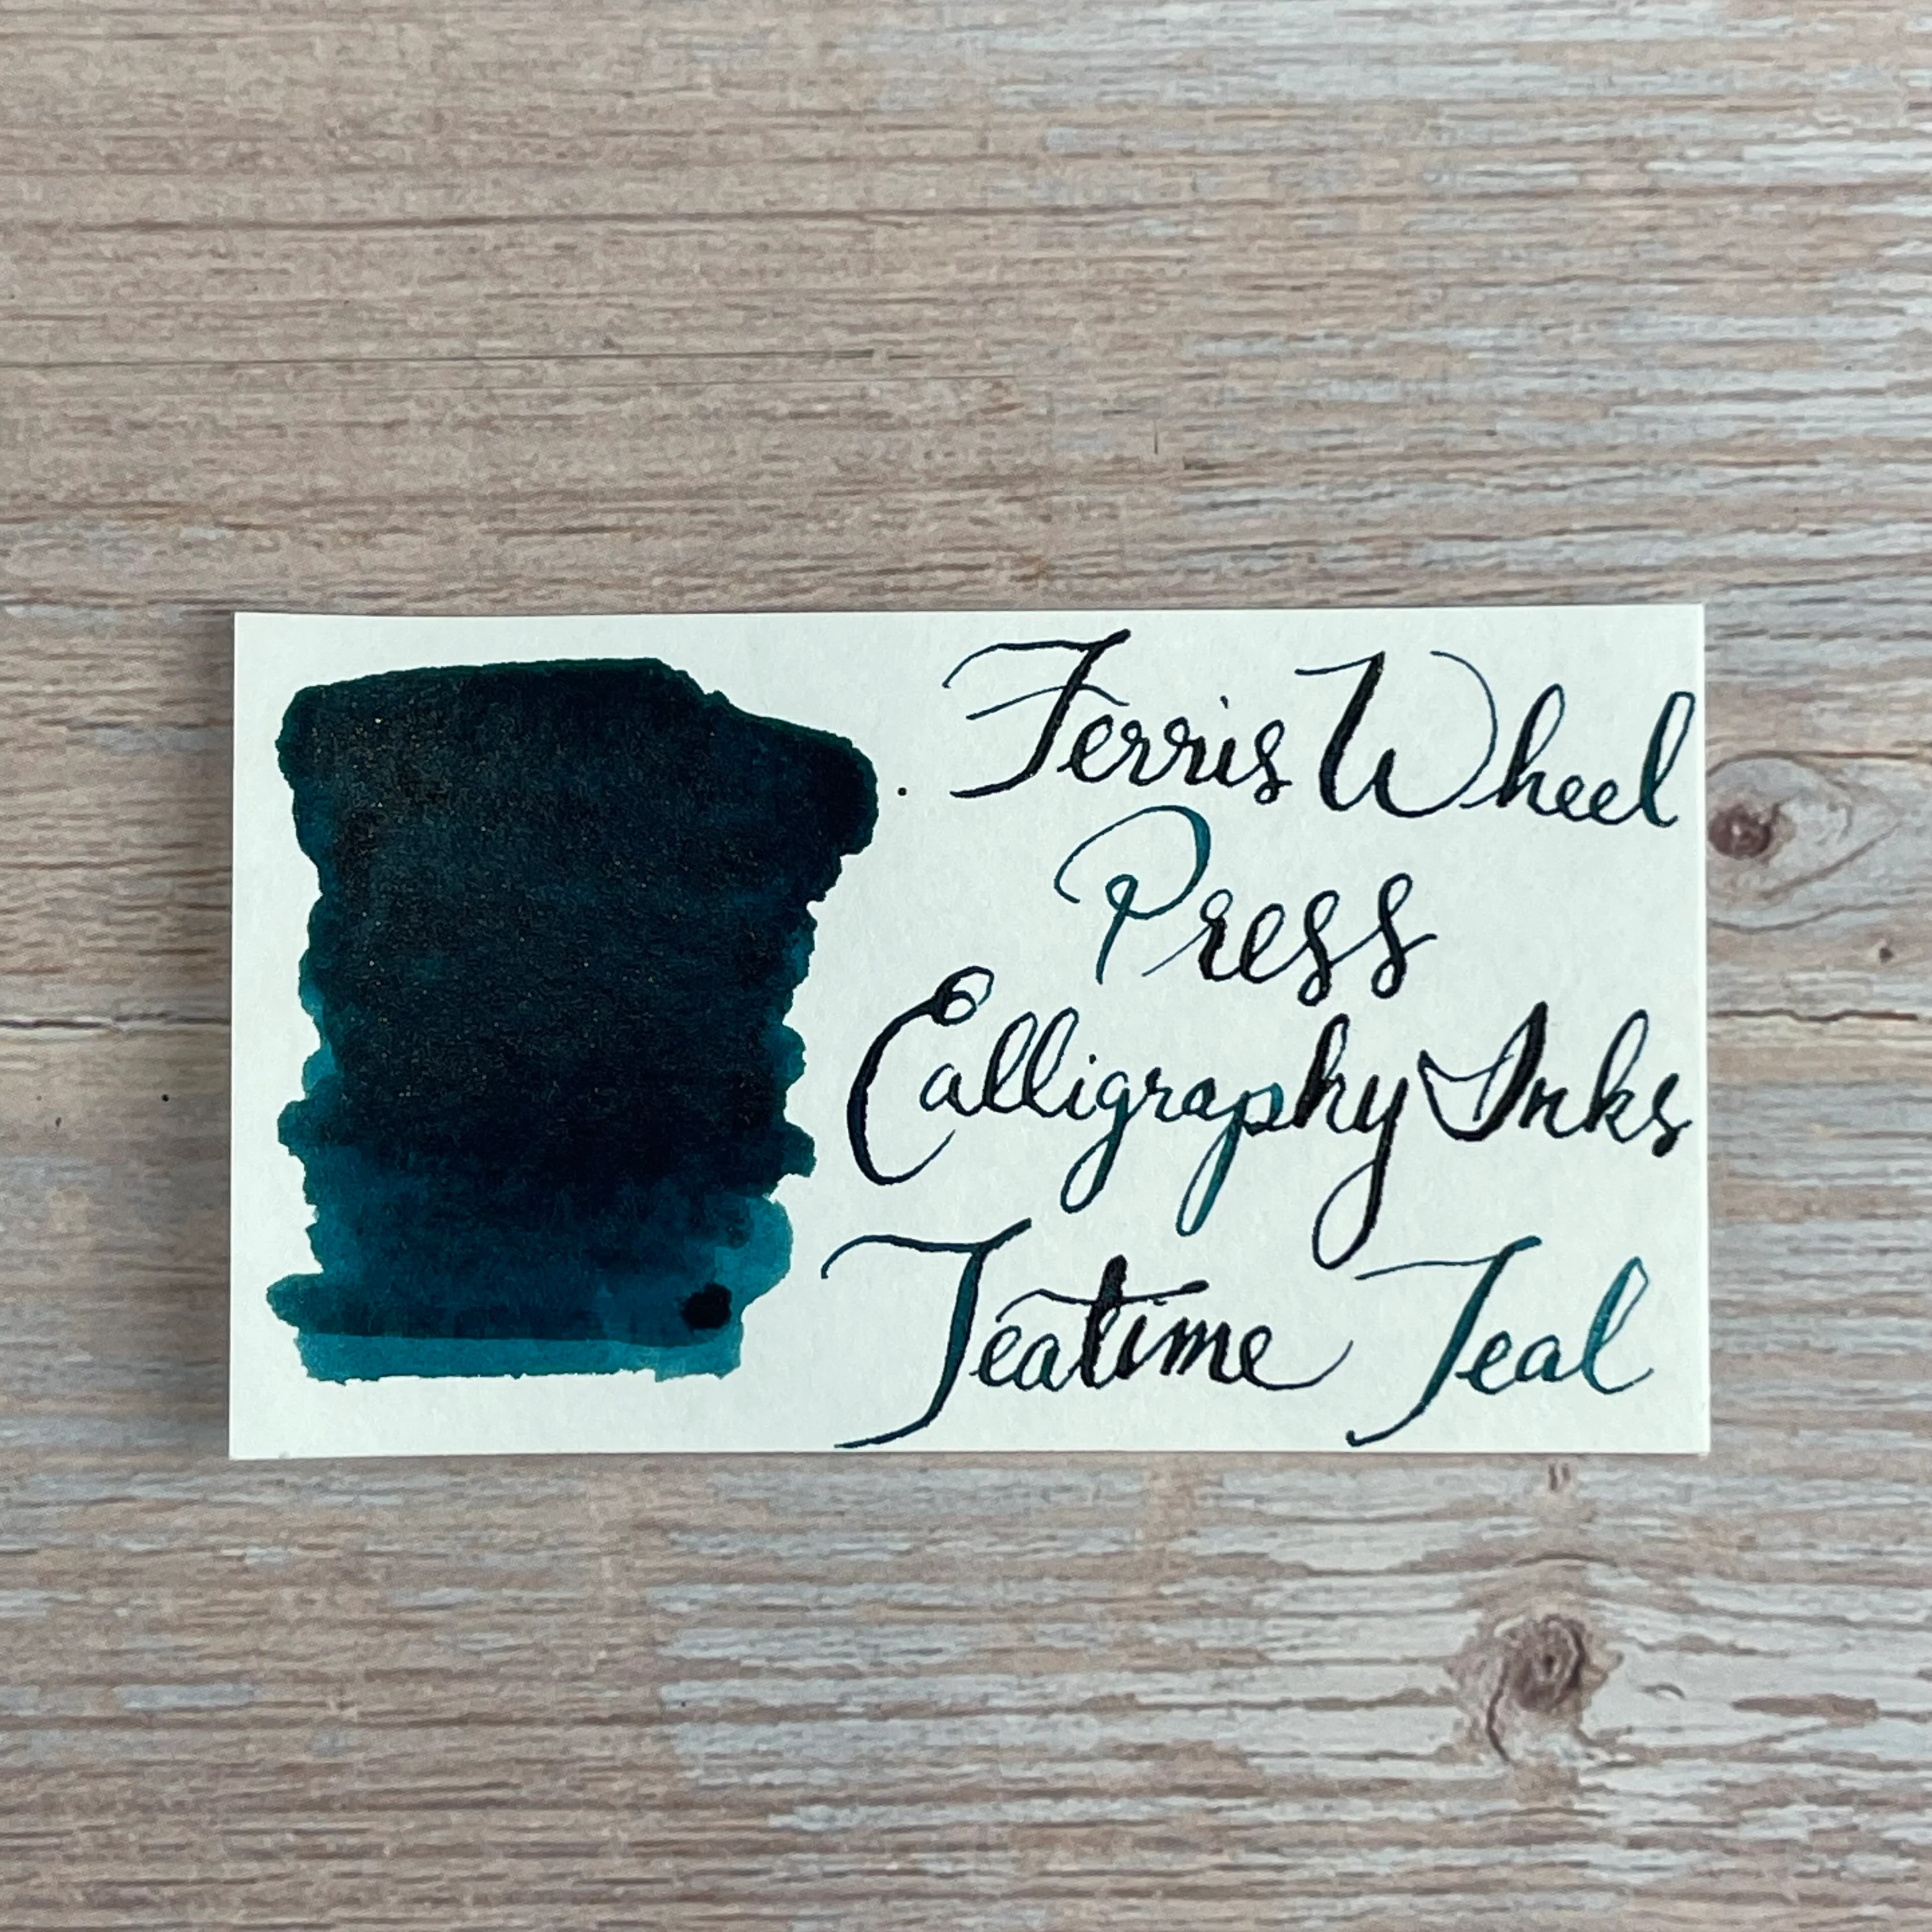 Ferris Wheel
Press
Calligraphy Inks
Teatime Teal